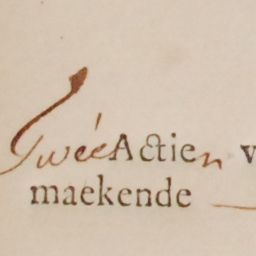 Twée Actien v
maekende